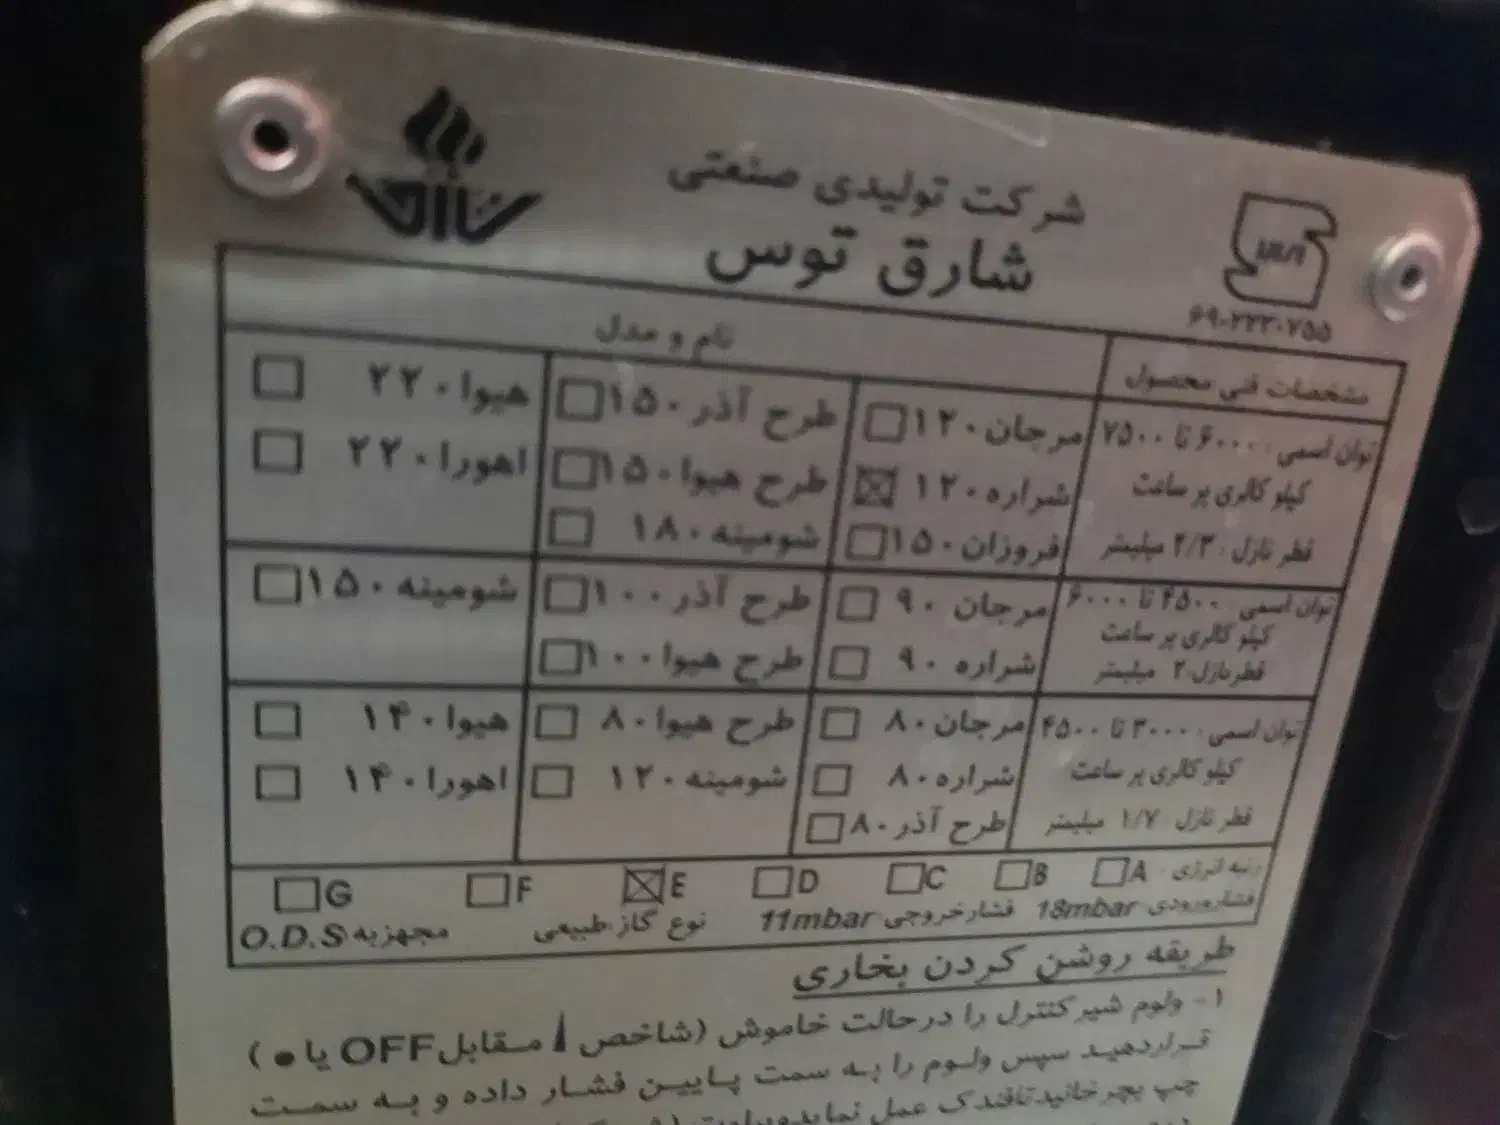 شرکت تولیدی صنعتی
شارق توس
توس
۶۹-۲۲۳-۷۵۵
نام و مدل
مشخصات فنی محصول
توان اسمی : ۶۰۰۰ تا ۷۵۰۰
کیلو کالری بر ساعت
قطر نازل : ۲/۳ میلیمتر
مرجان ۱۲۰ ☐
شراره ۱۲۰ ☒
فروزان ۱۵۰ ☐
طرح آذر ۱۵۰ ☐
طرح هیوا ۱۵۰ ☐
شومینه ۱۸۰ ☐
هیوا ۲۲۰ ☐
اهورا ۲۲۰ ☐
توان اسمی : ۴۵۰۰ تا ۶۰۰۰
کیلو کالری بر ساعت
قطر نازل : ۲ میلیمتر
مرجان ۹۰ ☐
شراره ۹۰ ☐
طرح آذر ۱۰۰ ☐
طرح هیوا ۱۰۰ ☐
شومینه ۱۵۰ ☐
توان اسمی : ۳۰۰۰ تا ۴۵۰۰
کیلو کالری بر ساعت
قطر نازل : ۱/۷ میلیمتر
مرجان ۸۰ ☐
شراره ۸۰ ☐
طرح آذر ۸۰ ☐
طرح هیوا ۸۰ ☐
شومینه ۱۲۰ ☐
هیوا ۱۴۰ ☐
اهورا ۱۴۰ ☐
رتبه انرژی : A ☐ B ☐ C ☐ D ☐ E ☒ F ☐ G ☐
فشارورودی: 18mbar فشارخروجی: 11mbar نوع گاز:طبیعی مجهزبه O.D.S
طریقه روشن کردن بخاری
۱- ولوم شیرکنترل را درحالت خاموش (شاخص مقابل OFF یا ● )
قراردهید سپس ولوم را به سمت پایین فشار داده و به سمت
چپ بچرخانیدتافندک عمل نماید